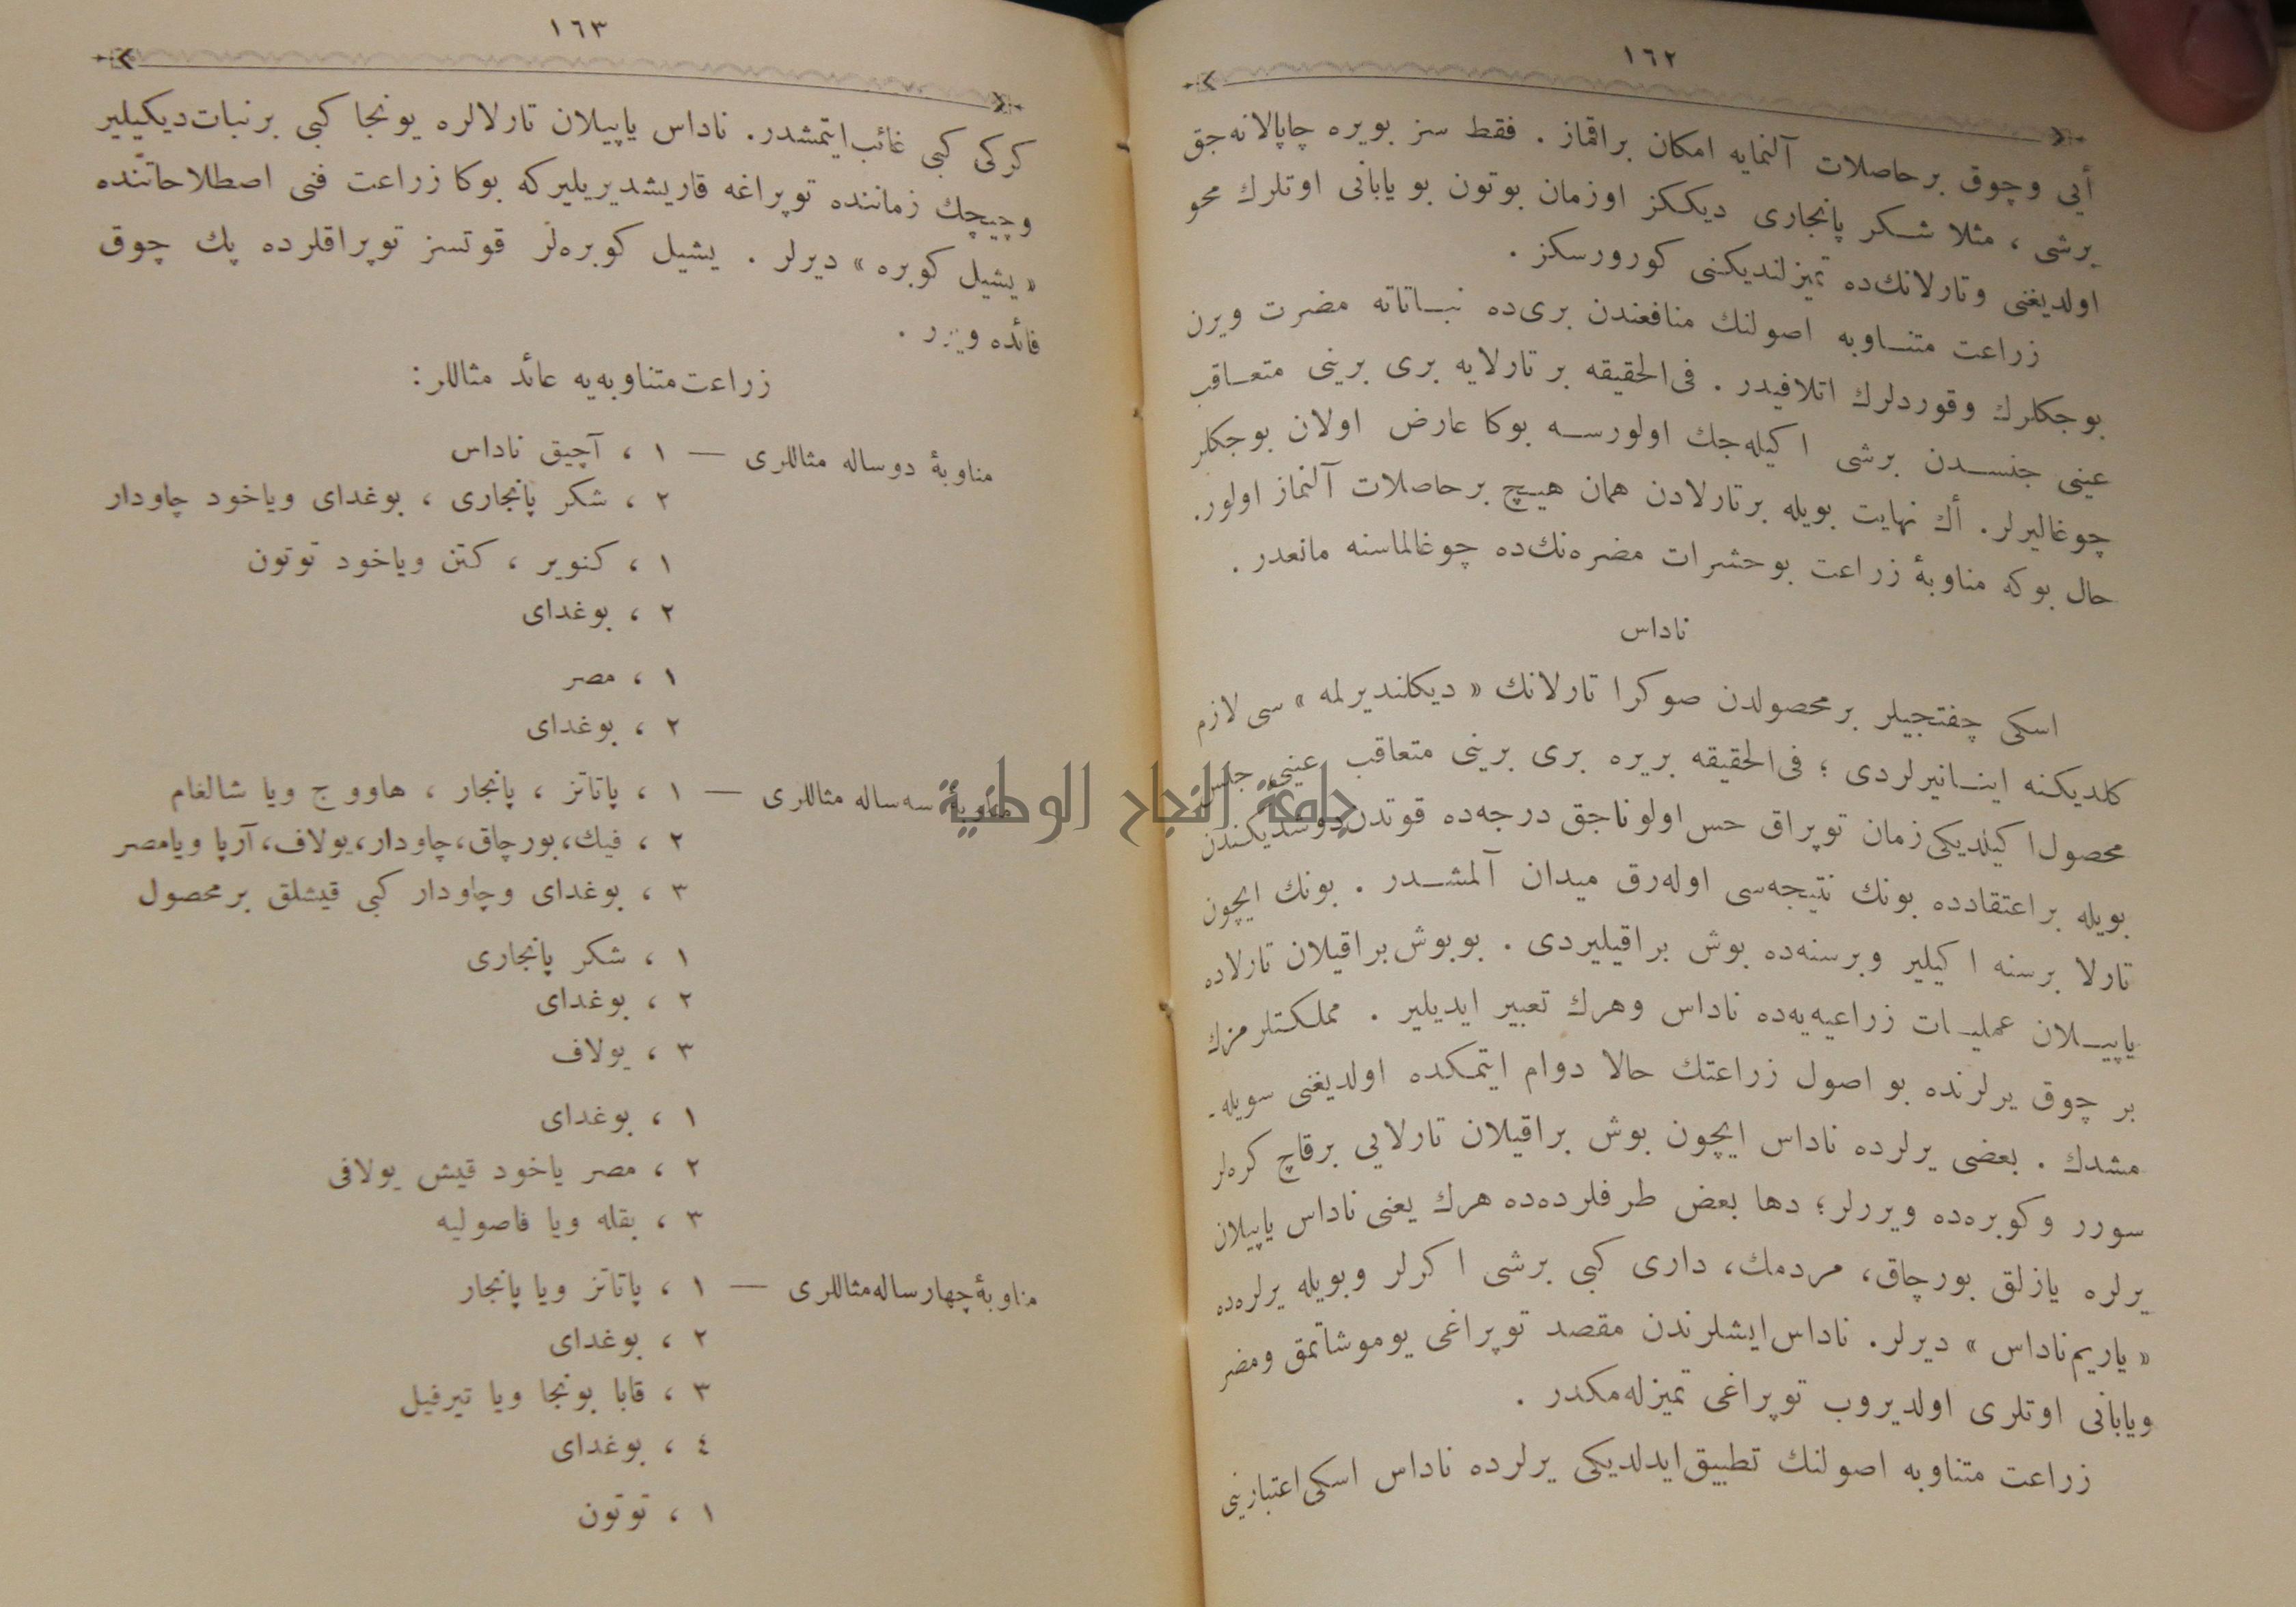 ١٦٢
أيى وچوق برحاصلات آلنمايه امكان براقماز . فقط سز بويره چاپالانه‌جق
يرشى ، مثلا شكر پانجارى ديككز اوزمان بوتون بو يابانى اوتلرك محو
اولديغنى وتارلانك‌ده تميزلنديكنى كورورسكز .
زراعت متناوبه اصولنك منافعندن برى‌ده نباتاته مضرت ويرن
بوجكلرك وقوردلرك اتلافيدر . فى‌الحقيقه بر تارلايه برى برينى متعاقب
عينى جنسدن برشى اكيله‌جك اولورسه بوكا عارض اولان بوجكلر
چوغاليرلر . أك نهايت بويله برتارلادن همان هيچ برحاصلات آلنماز اولور.
حال بوكه مناوبۀ زراعت بوحشرات مضره‌نك‌ده چوغالماسنه مانعدر .
ناداس
اسكى چفتجيلر برمحصولدن صوكرا تارلانك « ديكلنديرلمه » سى لازم
كلديكنه اينانيرلردى ؛ فى‌الحقيقه بريره برى برينى متعاقب عينى جنس
محصول اكيلديكى زمان توپراق حس اولوناجق درجه‌ده قوتدن دوشديكندن
بويله براعتقادده بونك نتيجه‌سى اوله‌رق ميدان آلمشدر . بونك ايچون
تارلا برسنه اكيلير وبرسنه‌ده بوش براقيليردى . بوبوش براقيلان تارلاده
ياپيلان عمليات زراعيه‌يه‌ده ناداس وهرك تعبير ايديلير . مملكتلرمزك
بر چوق يرلرنده بو اصول زراعتك حالا دوام ايتمكده اولديغنى سويله-
مشدك . بعضى يرلرده ناداس ايچون بوش براقيلان تارلايى برقاچ كره‌لر
سورر وكوبره‌ده ويررلر؛ دها بعض طرفلرده‌ده هرك يعنى ناداس ياپيلان
يرلره يازلق بورچاق، مردمك، دارى كبى برشى اكرلر وبويله يرلره‌ده
« ياريم ناداس » ديرلر. ناداس ايشلرندن مقصد توپراغى يوموشاتمق ومضر
ويابانى اوتلرى اولديروب توپراغى تميزله‌مكدر .
زراعت متناوبه اصولنك تطبيق ايدلديكى يرلرده ناداس اسكى اعتبارينى
١٦٣
كركى كبى غائب ايتمشدر. ناداس ياپيلان تارلالره يونجا كبى برنبات ديكيلير
وچيچك زماننده توپراغه قاريشديريليركه بوكا زراعت فنى اصطلاحاتنده
« يشيل كوبره » ديرلر . يشيل كوبره‌لر قوتسز توپراقلرده پك چوق
فائده ويرر .
زراعت متناوبه‌يه عائد مثاللر:
مناوبۀ دوساله مثاللرى — ١ ، آچيق ناداس
٢ ، شكر پانجارى ، بوغداى وياخود چاودار
١ ، كنوير ، كتن وياخود توتون
٢ ، بوغداى
١ ، مصر
٢ ، بوغداى
مناوبۀ سه‌ساله مثاللرى — ١ ، پاتاتز ، پانجار ، هاووج ويا شالغام
٢ ، فيك، بورچاق، چاودار، يولاف، آرپا ويامصر
٣ ، بوغداى وچاودار كبى قيشلق برمحصول
١ ، شكر پانجارى
٢ ، بوغداى
٣ ، يولاف
١ ، بوغداى
٢ ، مصر ياخود قيش يولافى
٣ ، بقله ويا فاصوليه
مناوبۀ چهارساله مثاللرى — ١ ، پاتاتز ويا پانجار
٢ ، بوغداى
٣ ، قابا يونجا ويا تيرفيل
٤ ، بوغداى
١ ، توتون
جامعة النجاح الوطنية